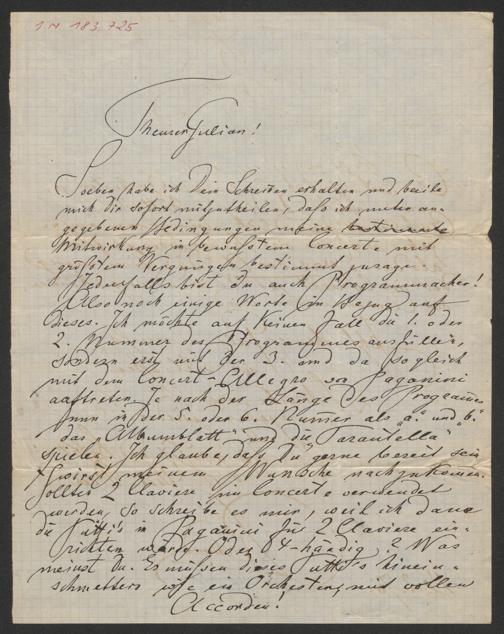 I.N 183.725
Theurer Julian!
Soeben habe ich Dein Schreiben erhalten und beeile
mich Dir sofort mitzutheilen, daß ich unter an-
gegebenen Bedingungen meine bestimmte
Mitwirkung in bewußtem Concerte mit
größtem Vergnügen bestimmt zusage.
Jedenfalls bist du auch Programmacher!
Also noch einige Worte in Bezug auf
dieses. Ich möchte auf keinen Fall die 1. oder
2. Nummer des Programmes ausfüllen,
sondern erst mit der 3. und da sogleich
mit dem Concert-Allegro von Paganini
auftreten. Je nach der Länge des Programmes
dann in der 5. oder 6. Nummer als „a." und „b."
das „Albumblatt" und die „Tarantella"
spielen. Ich glaube, daß Du gerne bereit sein
wirst meinem Wunsche nachzukommen.
Sollten 2 Claviere im Concerte verwendet
werden, so schreibe es mir, weil ich dann
die Tutti's in Paganini für 2 Claviere ein-
richten würde. Oder 4-händig? Was
meinst Du. Es müßen dieses Tutti's hinein-
schmettern wie ein Orchester, mit vollen
Accorden!